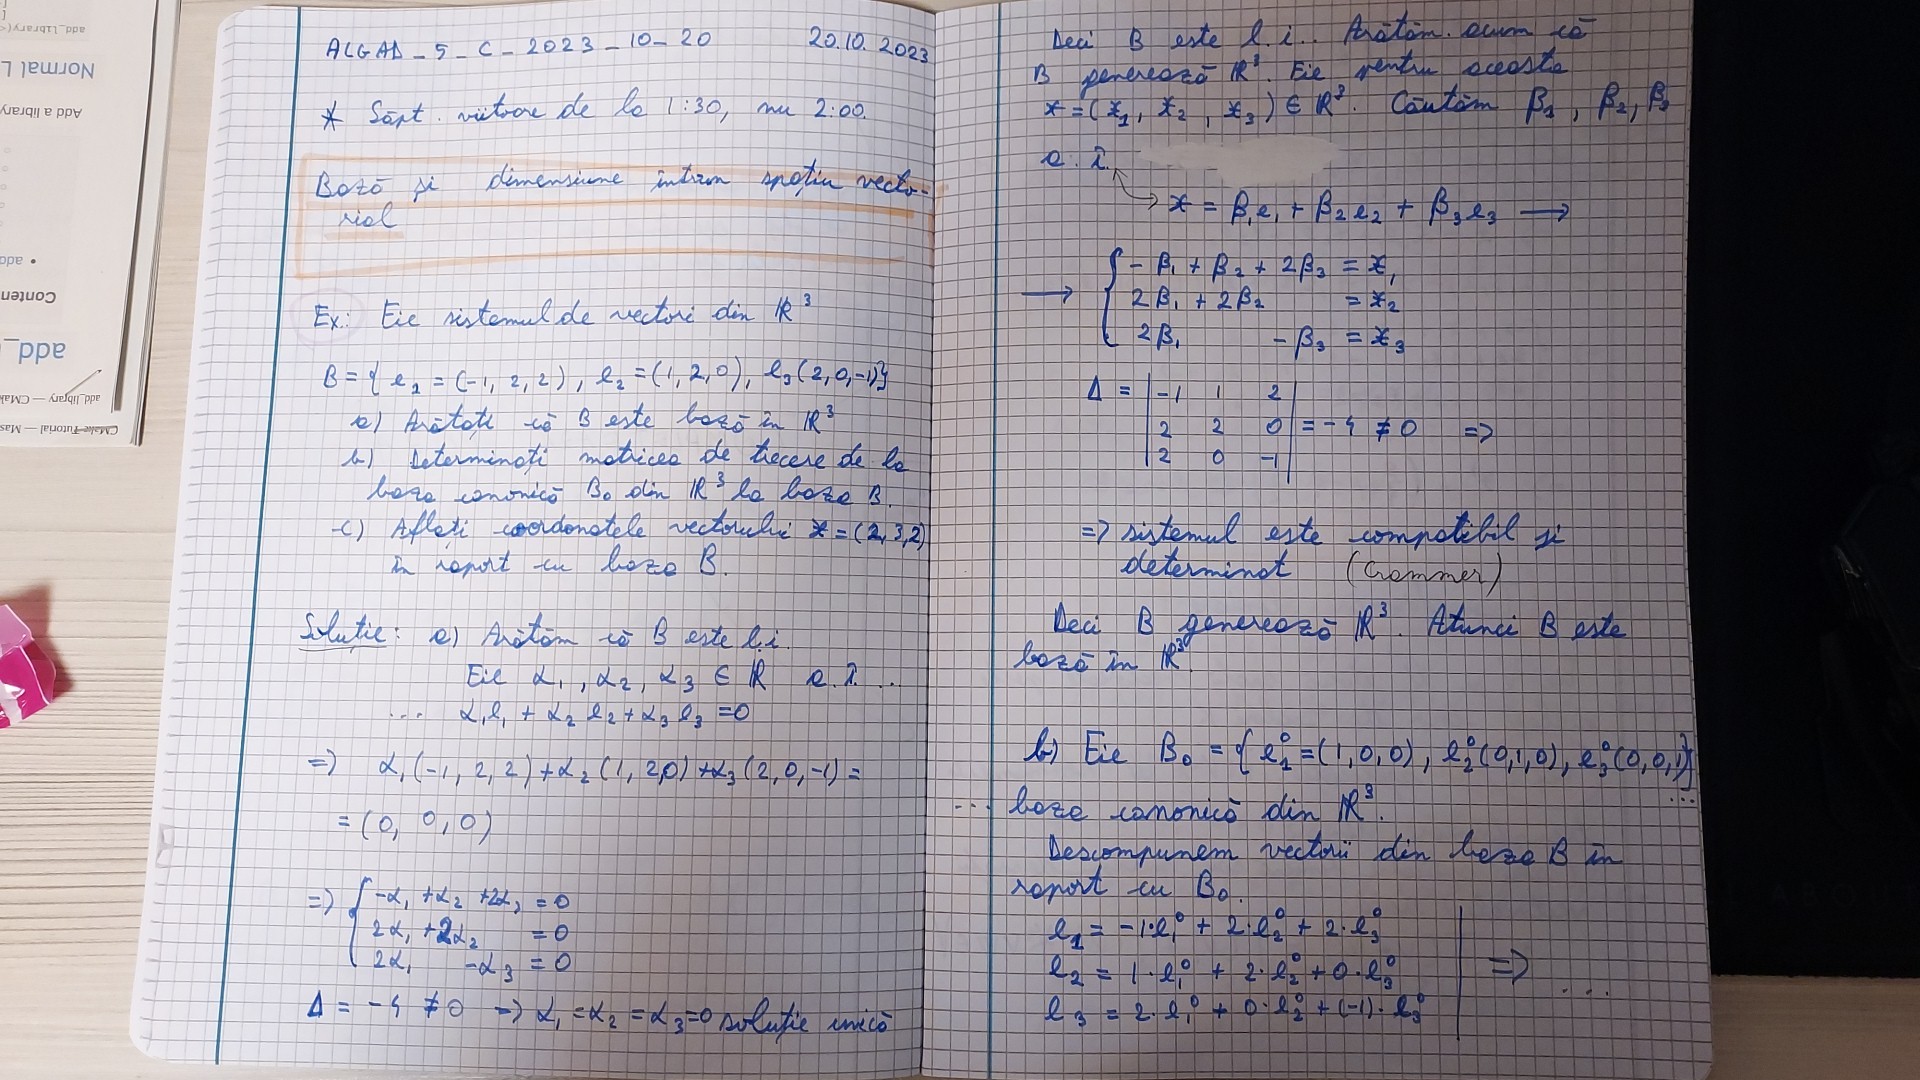 ALGAD_5_C_2023_10_20 20.10.2023
* Săpt. viitoare de la 1:30, nu 2:00.
Bază și dimensiune întrun spațiu vecto-
rial
Ex.: Fie sistemul de vectori din ℝ³
B = { e₁ = (-1, 2, 2), e₂ = (1, 2, 0), e₃(2, 0, -1)}
a) Arătați că B este bază în ℝ³
b) Determinați matricea de trecere de la
baza canonică B₀ din ℝ³ la baza B.
c) Aflați coordonatele vectorului x = (2, 3, 2)
în raport cu baza B.
Soluție: a) Arătăm că B este l.i.
Fie α₁, α₂, α₃ ∈ ℝ a.î. ...
... α₁e₁ + α₂e₂ + α₃e₃ = 0
=> α₁(-1, 2, 2) + α₂(1, 2, 0) + α₃(2, 0, -1) =
= (0, 0, 0)
=> { -α₁ + α₂ + 2α₃ = 0
2α₁ + 2α₂ = 0
2α₁ - α₃ = 0
Δ = -4 ≠ 0 => α₁ = α₂ = α₃ = 0 soluție unică
Deci B este l.i.. Arătăm acum că
B generează ℝ³. Fie pentru aceasta
x = (x₁, x₂, x₃) ∈ ℝ³. Căutăm β₁, β₂, β₃
a.î.
x = β₁e₁ + β₂e₂ + β₃e₃ →
→ { -β₁ + β₂ + 2β₃ = x₁
2β₁ + 2β₂ = x₂
2β₁ - β₃ = x₃
Δ = | -1 1 2 |
| 2 2 0 | = -4 ≠ 0 =>
| 2 0 -1 |
=> sistemul este compatibil și
determinat (Crammer)
Deci B generează ℝ³. Atunci B este
bază în ℝ³.
b) Fie B₀ = { e₁⁰ = (1, 0, 0), e₂⁰(0, 1, 0), e₃⁰(0, 0, 1)}
... baza canonică din ℝ³. ...
Descompunem vectorii din baza B în
raport cu B₀.
e₁ = -1·e₁⁰ + 2·e₂⁰ + 2·e₃⁰
e₂ = 1·e₁⁰ + 2·e₂⁰ + 0·e₃⁰ => ...
e₃ = 2·e₁⁰ + 0·e₂⁰ + (-1)·e₃⁰
add_library(
Normal L
Add a library
• add
Conten
add_
add_library — CMak
CMake Tutorial — Mas